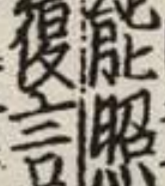 能照
復言